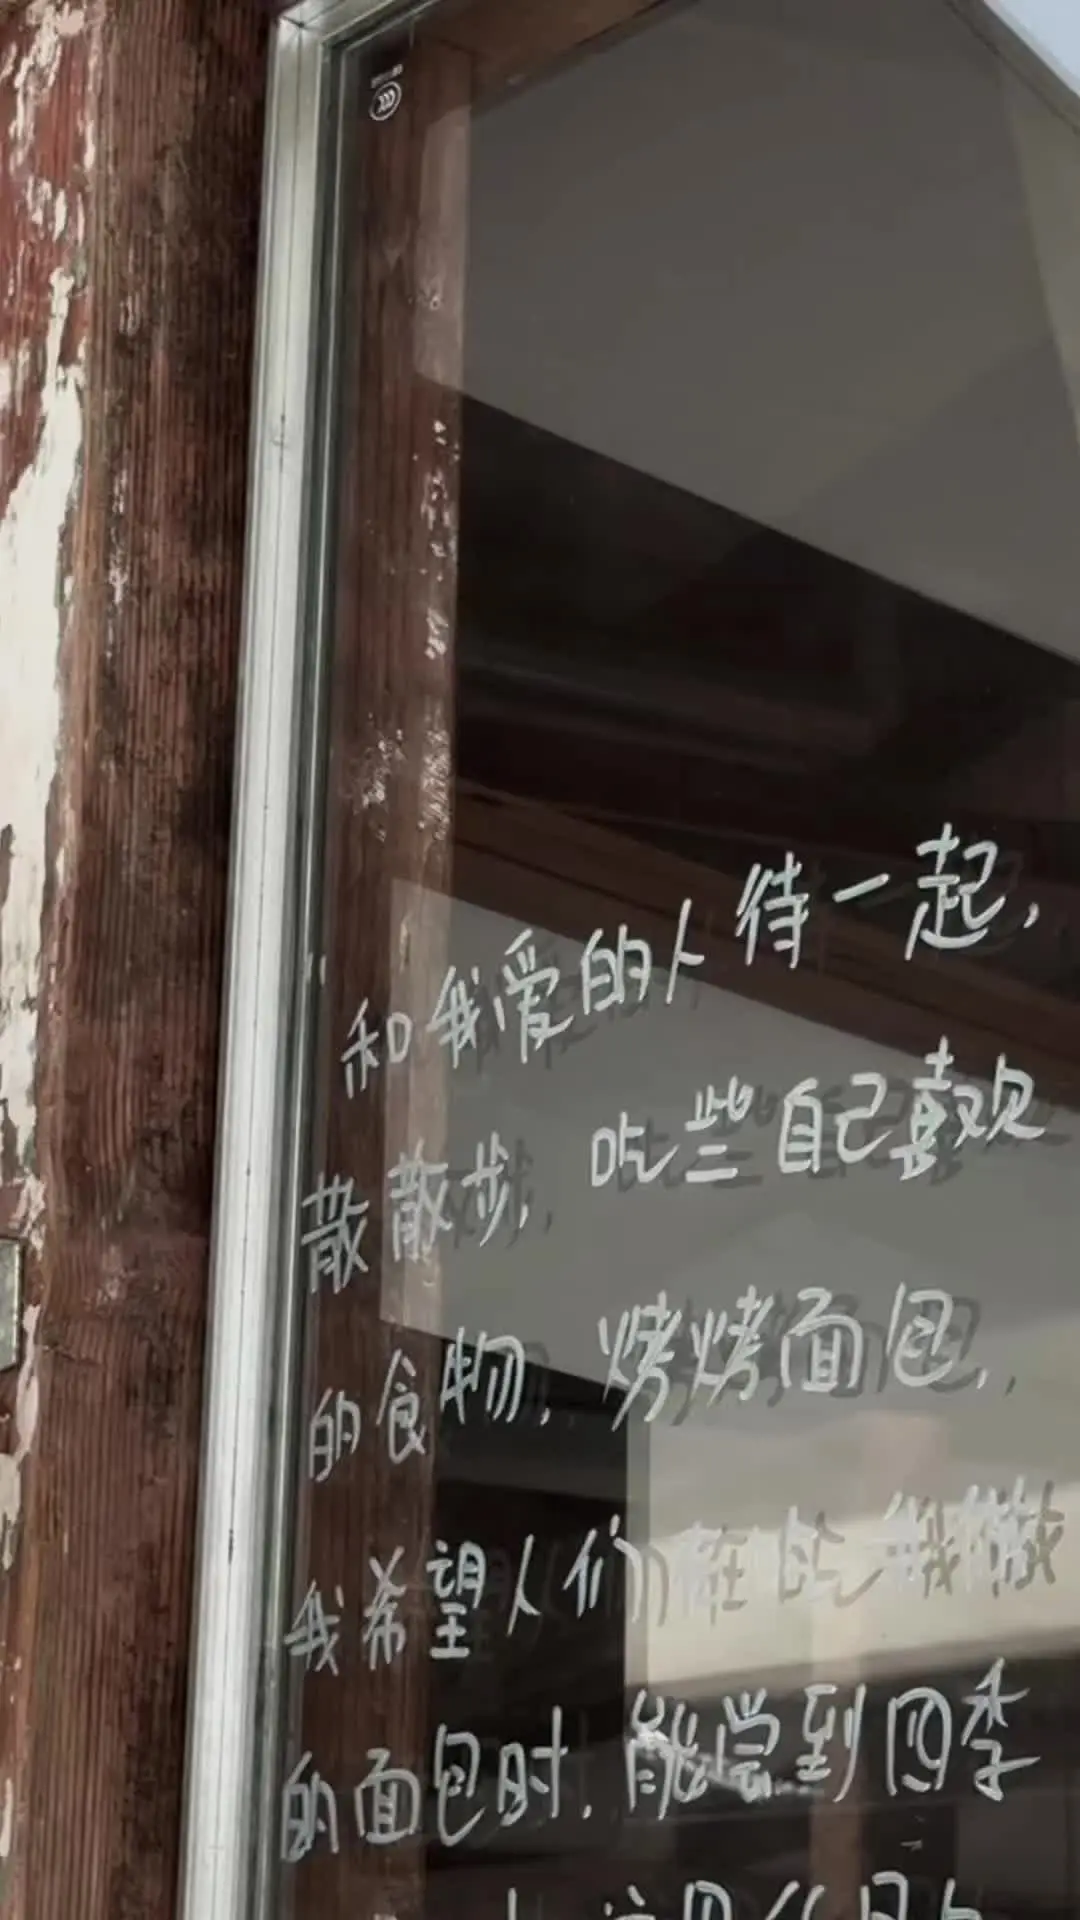 和我爱的人待一起,
散散步, 吃些自己喜欢
的食物, 烤烤面包,
我希望人们在吃我做
的面包时, 能尝到四季